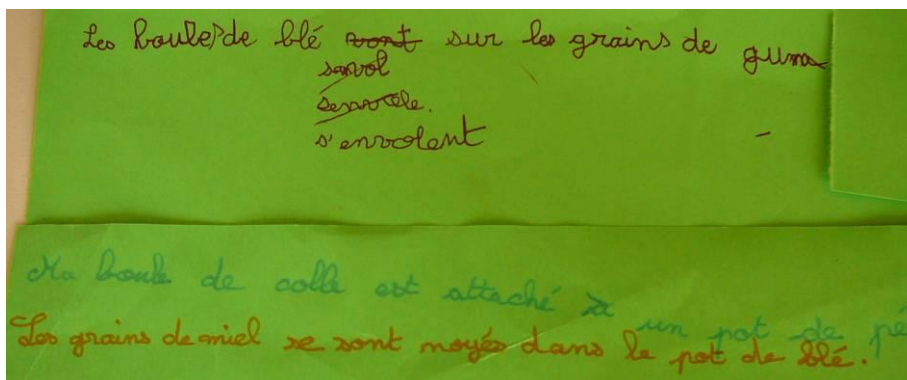 Les boules de blé sont sur les grains de
sanvol
senvole.
s'envolent
Ma boule de colle est attaché à un pot de
Les grains de miel se sont noyés dans le pot de blé.